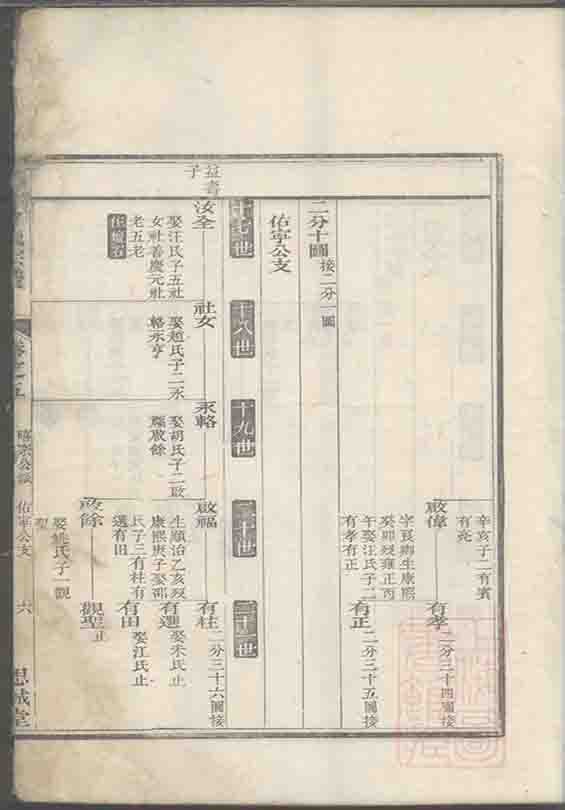 辛亥子二有賓
有亮
啟偉
字良卿生康熙
癸卯歿雍正丙
午娶汪氏子二
有孝有正
有孝
二分三十四圖接
有正
二分三十五圖接
二分十圖
接二分一圖
佑寧公支
十七世
十八世
十九世
二十世
二十一世
益壽
子
汝全
娶汪氏子五社
女社善慶元社
老五老
社女
娶趙氏子二永
輅永亨
永輅
娶胡氏子二啟
福啟餘
啟福
生順治乙亥歿
康熙庚子娶邵
氏子三有柱有
選有田
有柱
二分三十六圖接
有選
娶朱氏止
有田
娶江氏止
啟餘
娶姚氏子一觀
聖
觀聖
止
佑寧公支
六
思誠堂